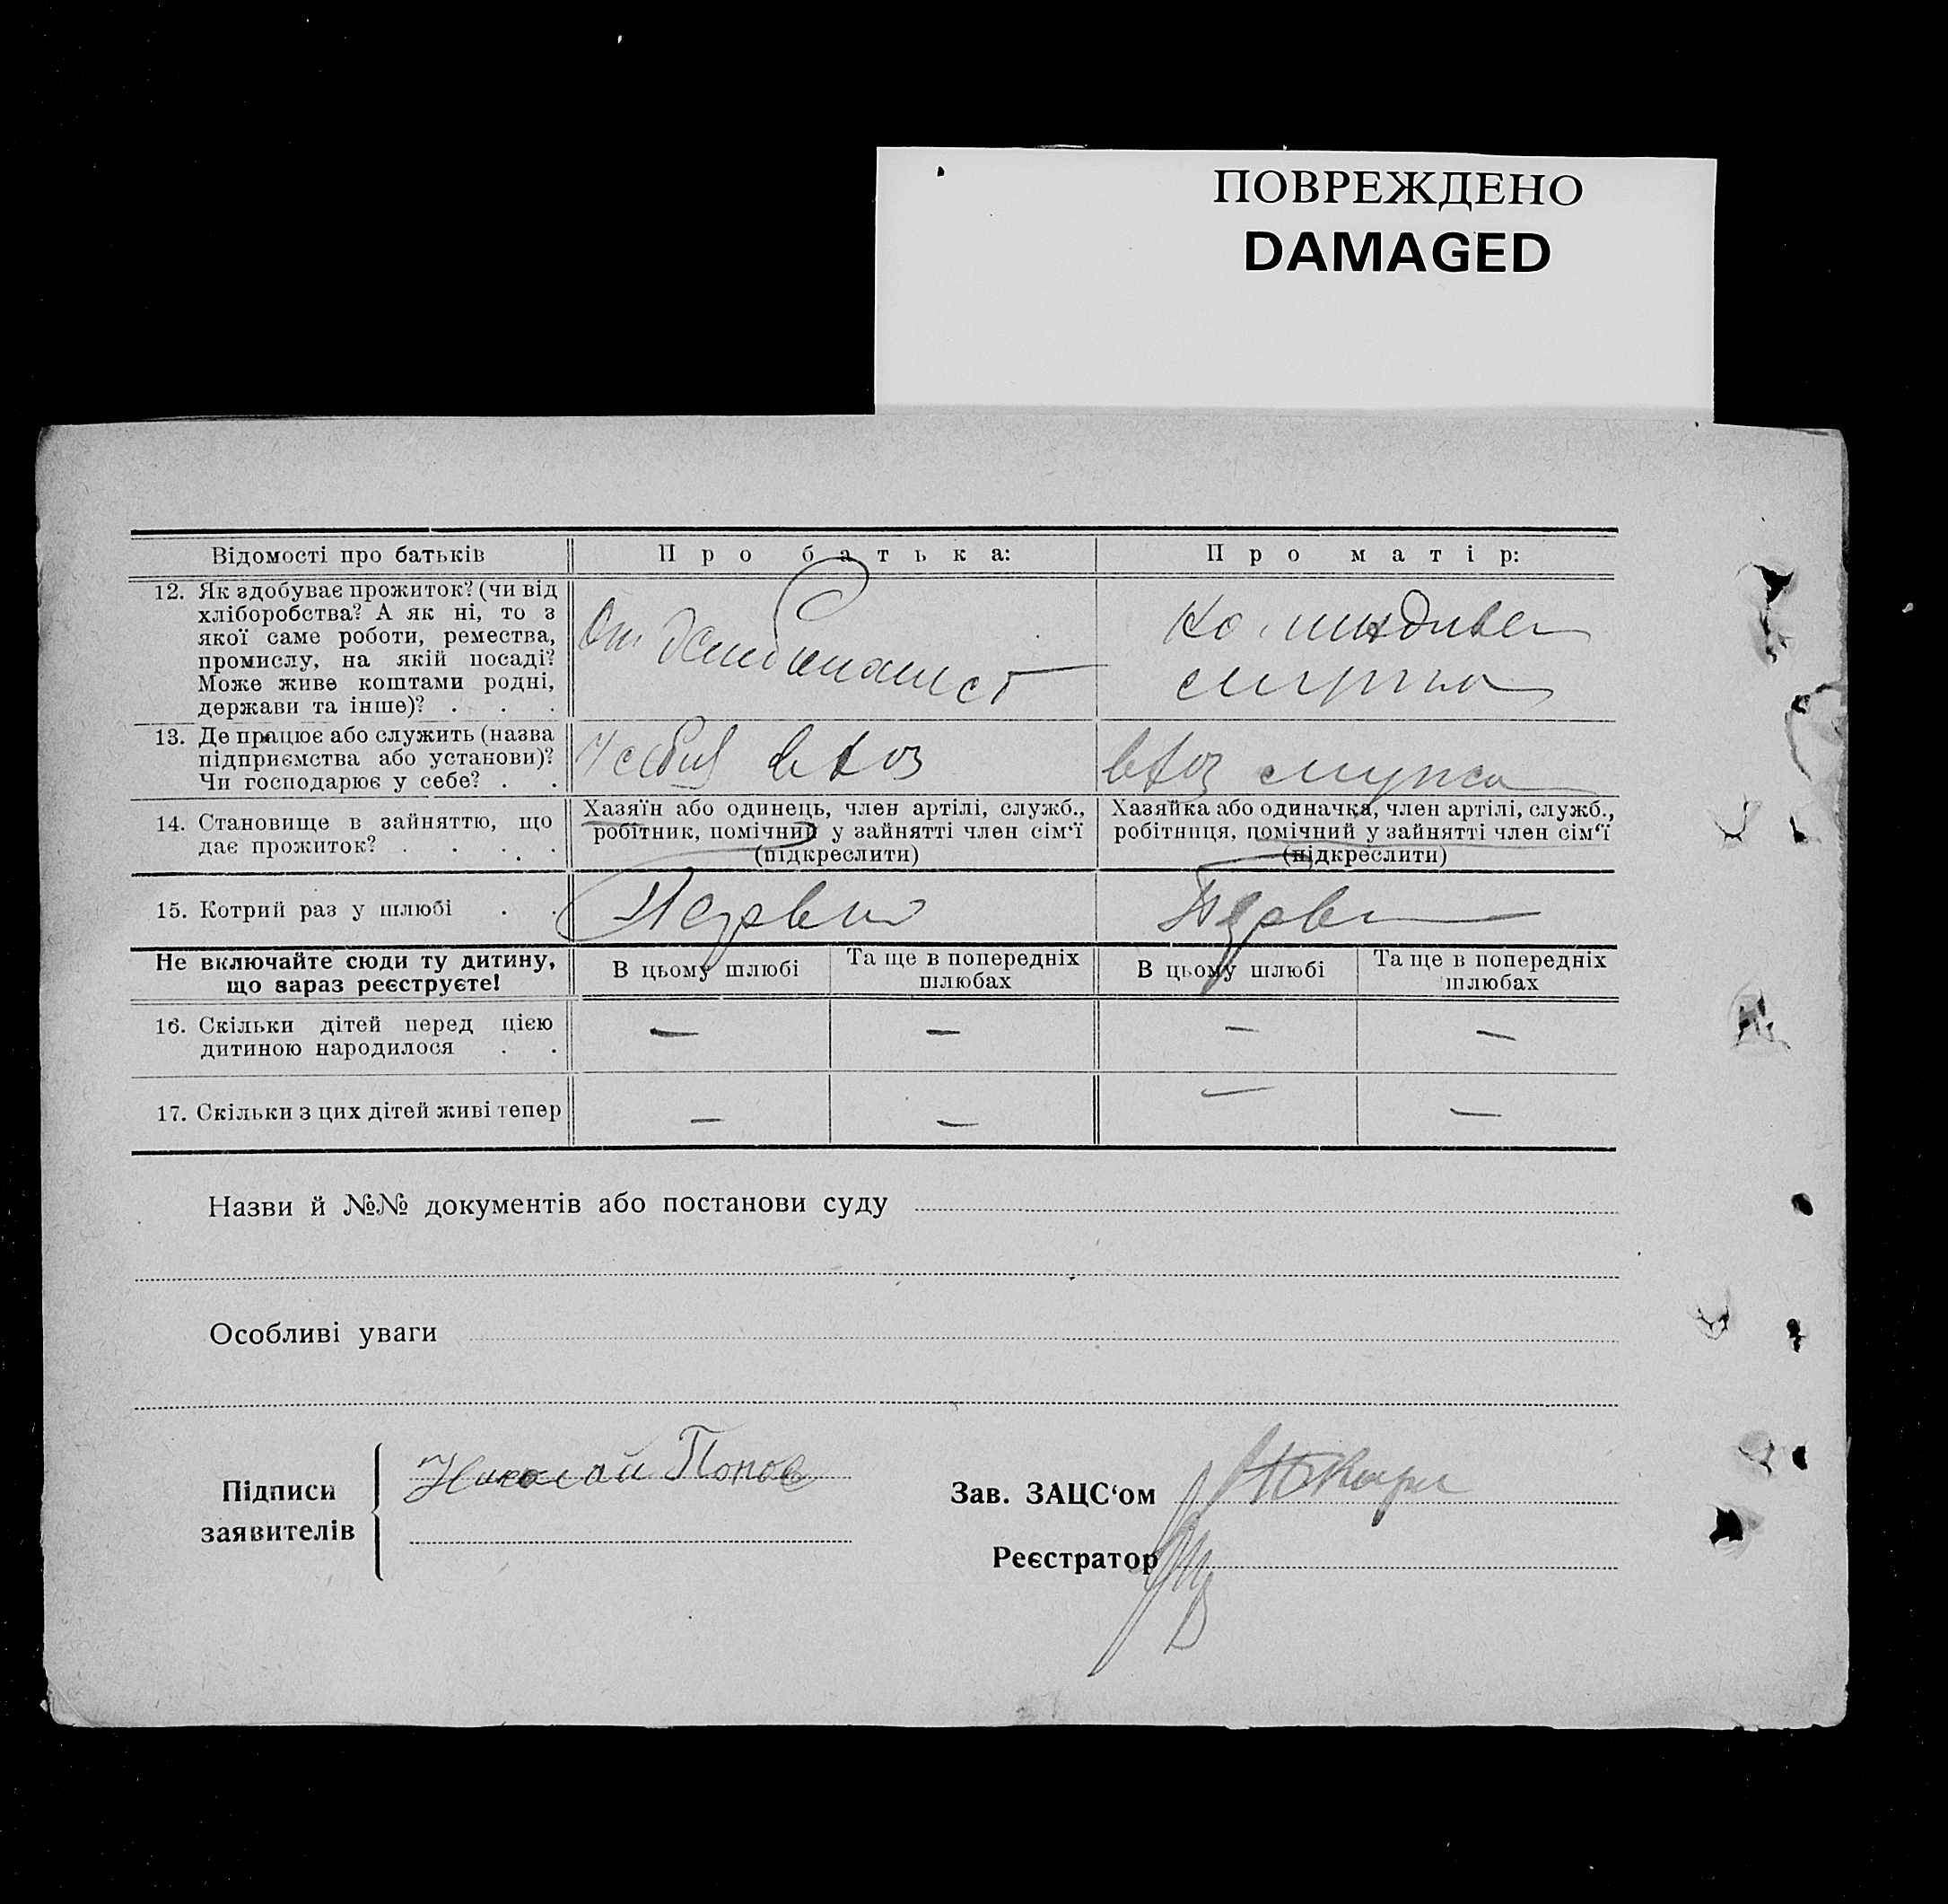 ПОВРЕЖДЕНО
DAMAGED
Відомості про батьків
Про батька:
Про матір:
12. Як здобуває прожиток? (чи від
хліборобства? А як ні, то з
якої саме роботи, ремества,
промислу, на якій посаді?
Може живе коштами родні,
держави та інше)? . . .
На иждивен
мужа
13. Де працює або служить (назва
підприємства або установи)?
Чи господарює у себе? . .
мужа
14. Становище в зайняттю, що
дає прожиток? . . . .
Хазяїн або одинець, член артілі, служб.,
робітник, помічний у зайнятті член сім'ї
(підкреслити)
Хазяйка або одиначка, член артілі, служб.,
робітниця, помічний у зайнятті член сім'ї
(підкреслити)
15. Котрий раз у шлюбі . .
Первий
Перви
Не включайте сюди ту дитину,
що зараз реєструєте!
В цьому шлюбі
Та ще в попередніх
шлюбах
В цьому шлюбі
Та ще в попередніх
шлюбах
16. Скільки дітей перед цією
дитиною народилося . .
— — — —
17. Скільки з цих дітей живі тепер
— — — —
Назви й №№ документів або постанови суду
Особливі уваги
Підписи
заявителів
Николай Попов
Зав. ЗАЦС'ом
Реєстратор